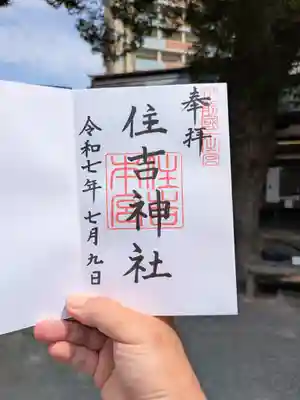 奉拝
住吉神社
住吉本宮
令和七年七月九日